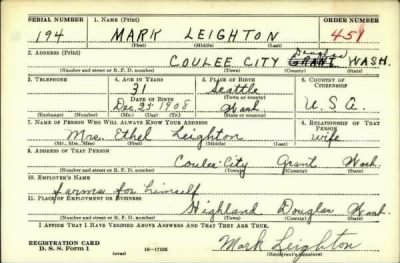 SERIAL NUMBER 1. NAME (Print) ORDER NUMBER
194 MARK LEIGHTON 451
(First) (Middle) (Last)
2. ADDRESS (Print) Douglas
COULEE CITY GRANT WASH.
(Number and street or R. F. D. number) (Town) (County) (State)
3. TELEPHONE 4. AGE IN YEARS 5. PLACE OF BIRTH 6. COUNTRY OF CITIZENSHIP
31 Seattle
DATE OF BIRTH (Town or county)
Dec. 31 1908 Wash. U.S.A.
(Exchange) (Number) (Mo.) (Day) (Yr.) (State or country)
7. NAME OF PERSON WHO WILL ALWAYS KNOW YOUR ADDRESS 8. RELATIONSHIP OF THAT PERSON
Mrs. Ethel Leighton wife
(Mr., Mrs., Miss) (First) (Middle) (Last)
9. ADDRESS OF THAT PERSON
Coulee City Grant Wash.
(Number and street or R. F. D. number) (Town) (County) (State)
10. EMPLOYER'S NAME
farms for himself
11. PLACE OF EMPLOYMENT OR BUSINESS
Highland Douglas Wash.
(Number and street or R. F. D. number) (Town) (County) (State)
I AFFIRM THAT I HAVE VERIFIED ABOVE ANSWERS AND THAT THEY ARE TRUE.
REGISTRATION CARD
D. S. S. Form 1 (over) 16-17105 Mark Leighton
(Registrant's signature)